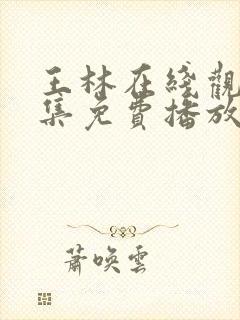 王林在綫觀
集免費播放
蕭喚雲